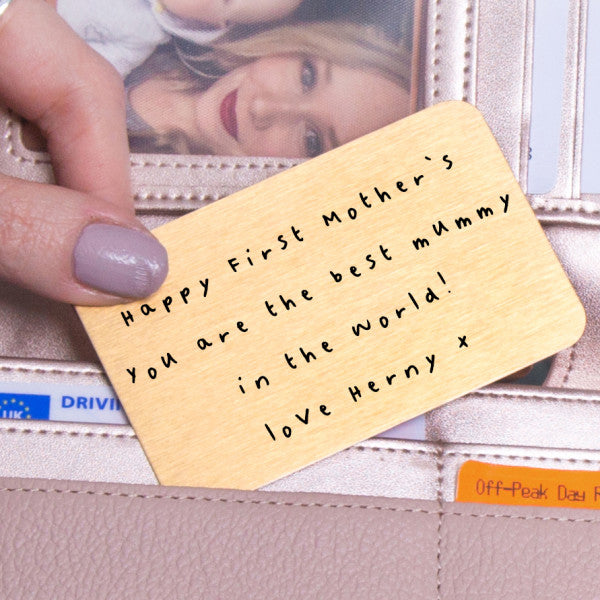 Happy First Mother's
you are the best mummy
in the world!
love Herny x
UK
DRIVI
Off-Peak Day R